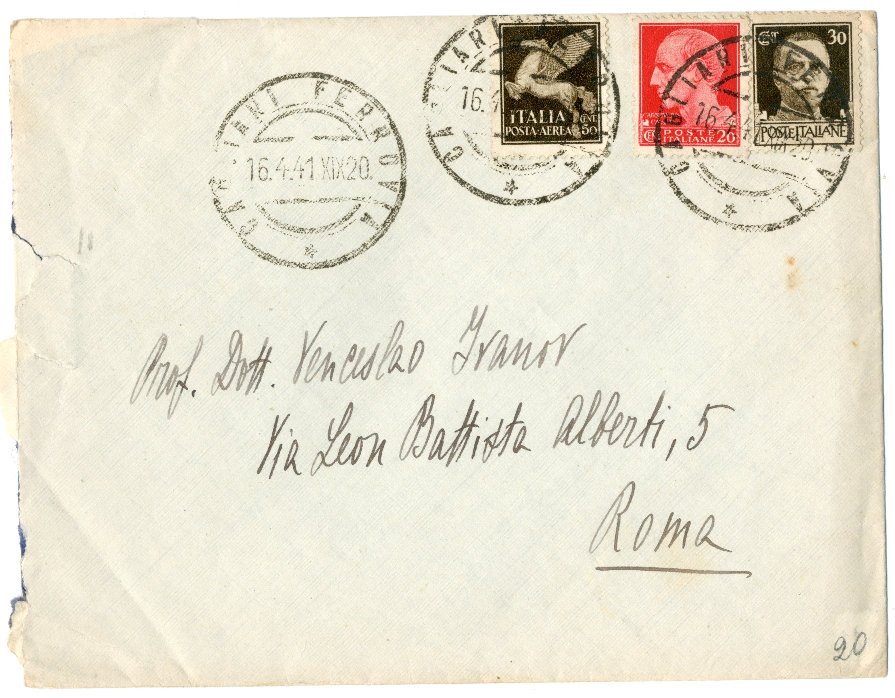 CAGLIARI FERROVIA
16.4.41 XIX 20.
CAGLIARI
16.
ITALIA
POSTA-AEREA
CENT
50
CAGLIARI
16.4.41
20.
VIA
POSTE
ITALIANE
20
30
POSTE ITALIANE
Prof. Dott. Venceslao Ivanov
Via Leon Battista Alberti, 5
Roma
20